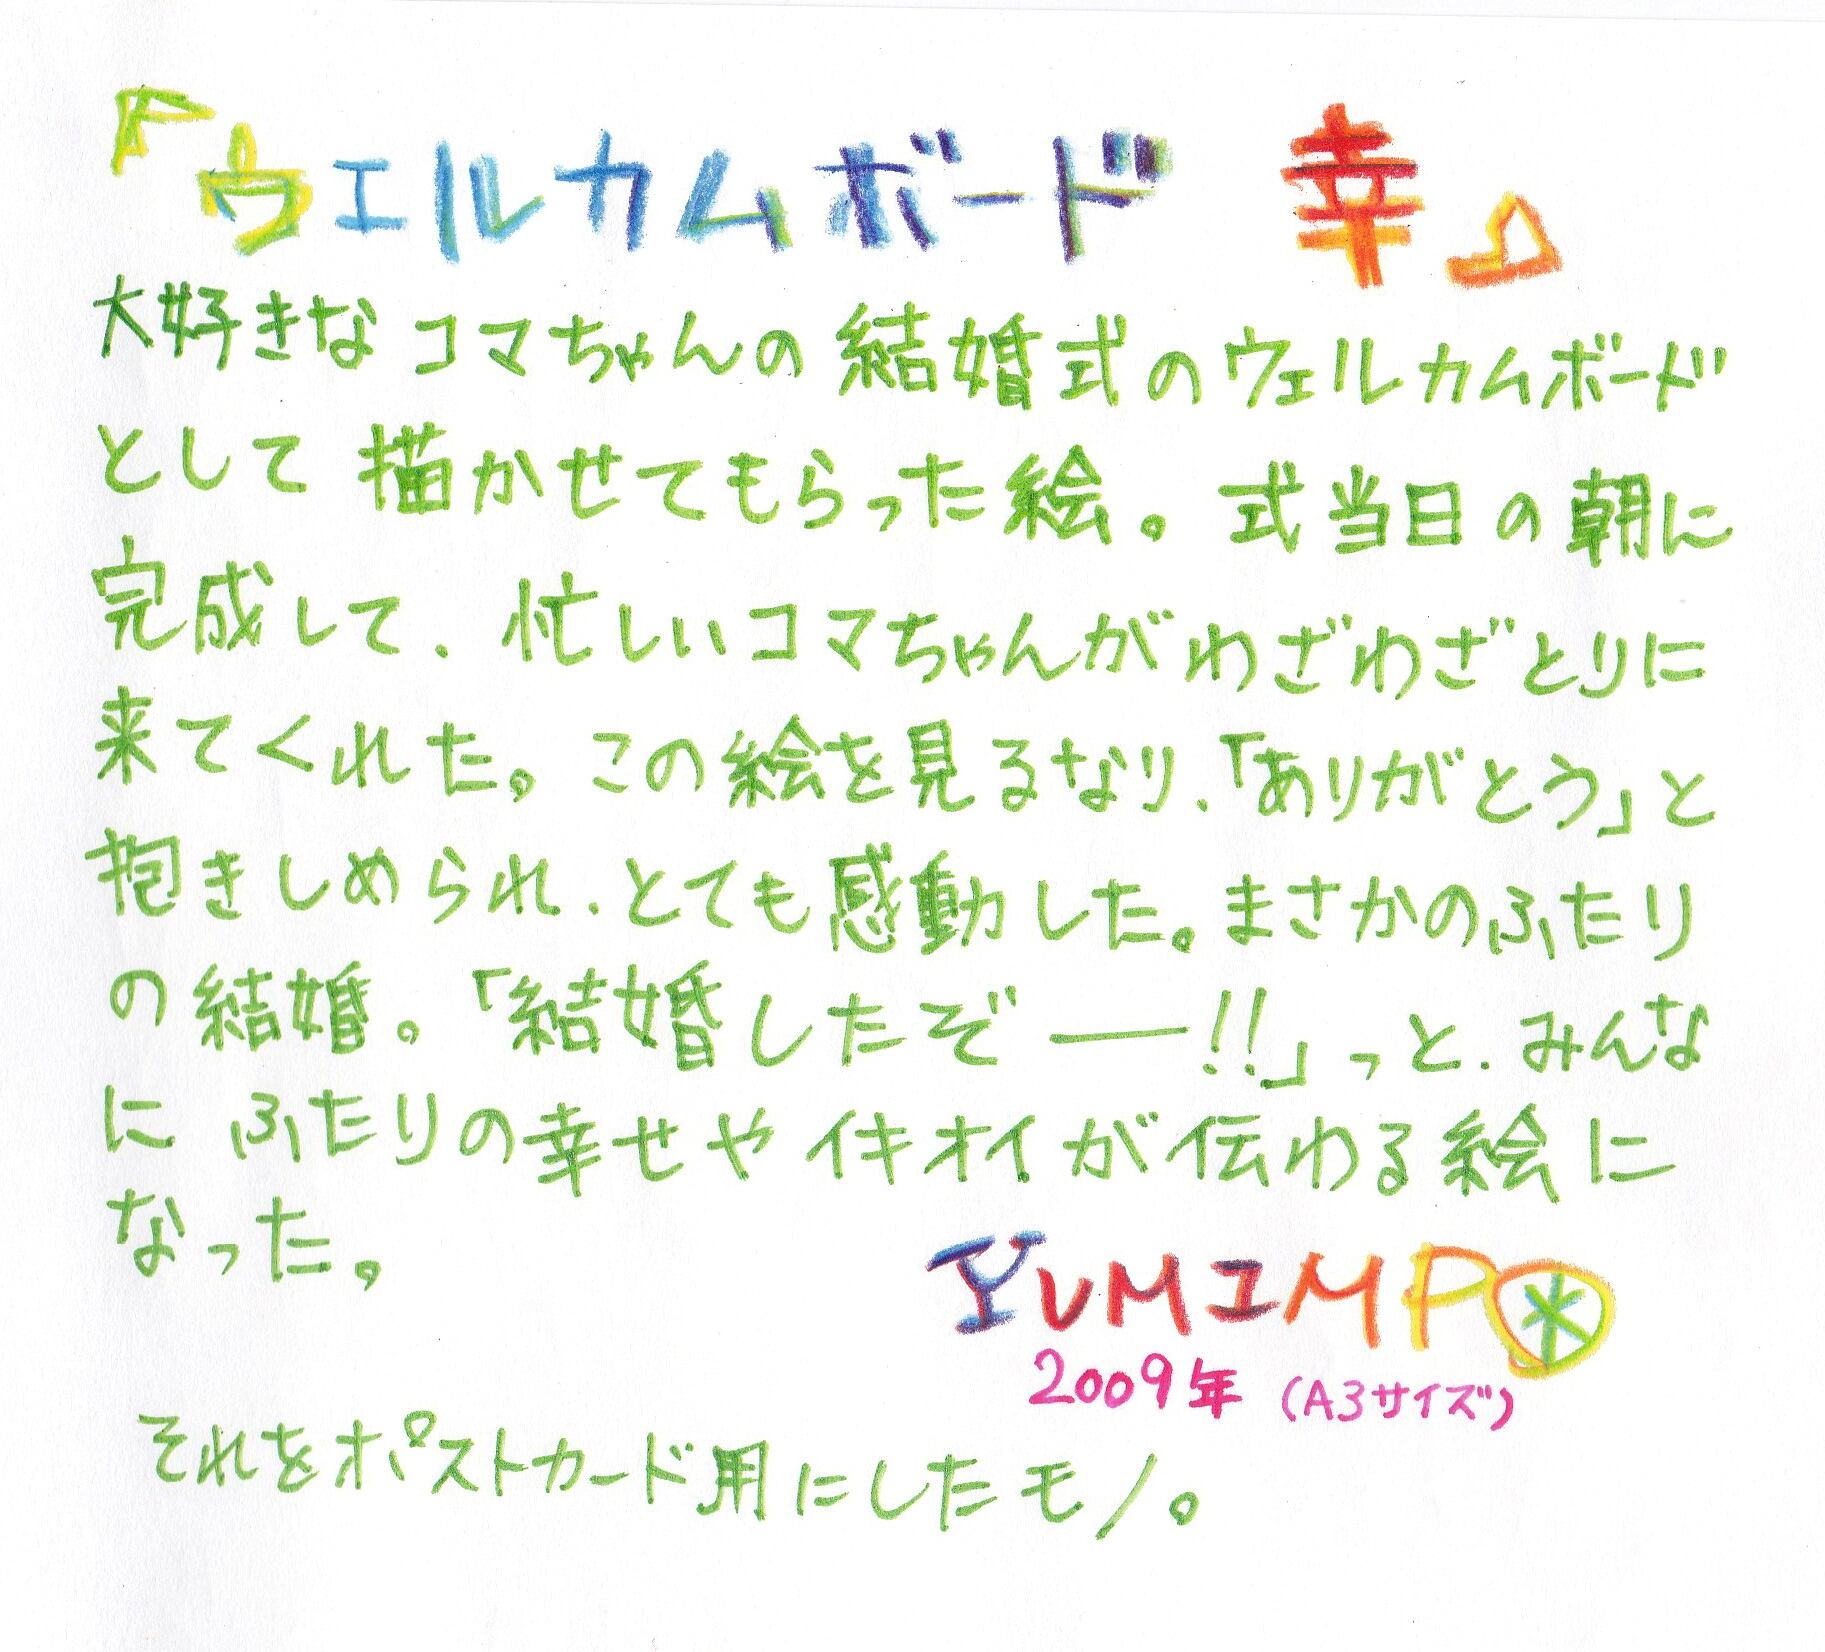 『ウェルカムボード 幸』
大好きなコマちゃんの結婚式のウェルカムボード
として描かせてもらった絵。式当日の朝に
完成して、忙しいコマちゃんがわざわざとりに
来てくれた。この絵を見るなり、「ありがとう」と
抱きしめられ、とても感動した。まさかのふたり
の結婚。「結婚したぞー!!」っと、みんな
に ふたりの幸せやイキオイが伝わる絵に
なった。
YUMIMPO
2009年 (A3サイズ)
それをポストカード用にしたモノ。